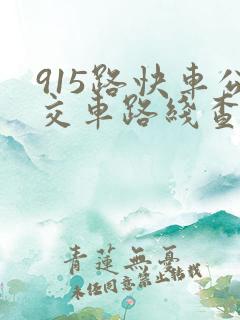 915路快車公
交車路綫查
青蓮無憂
未经同意禁止转载